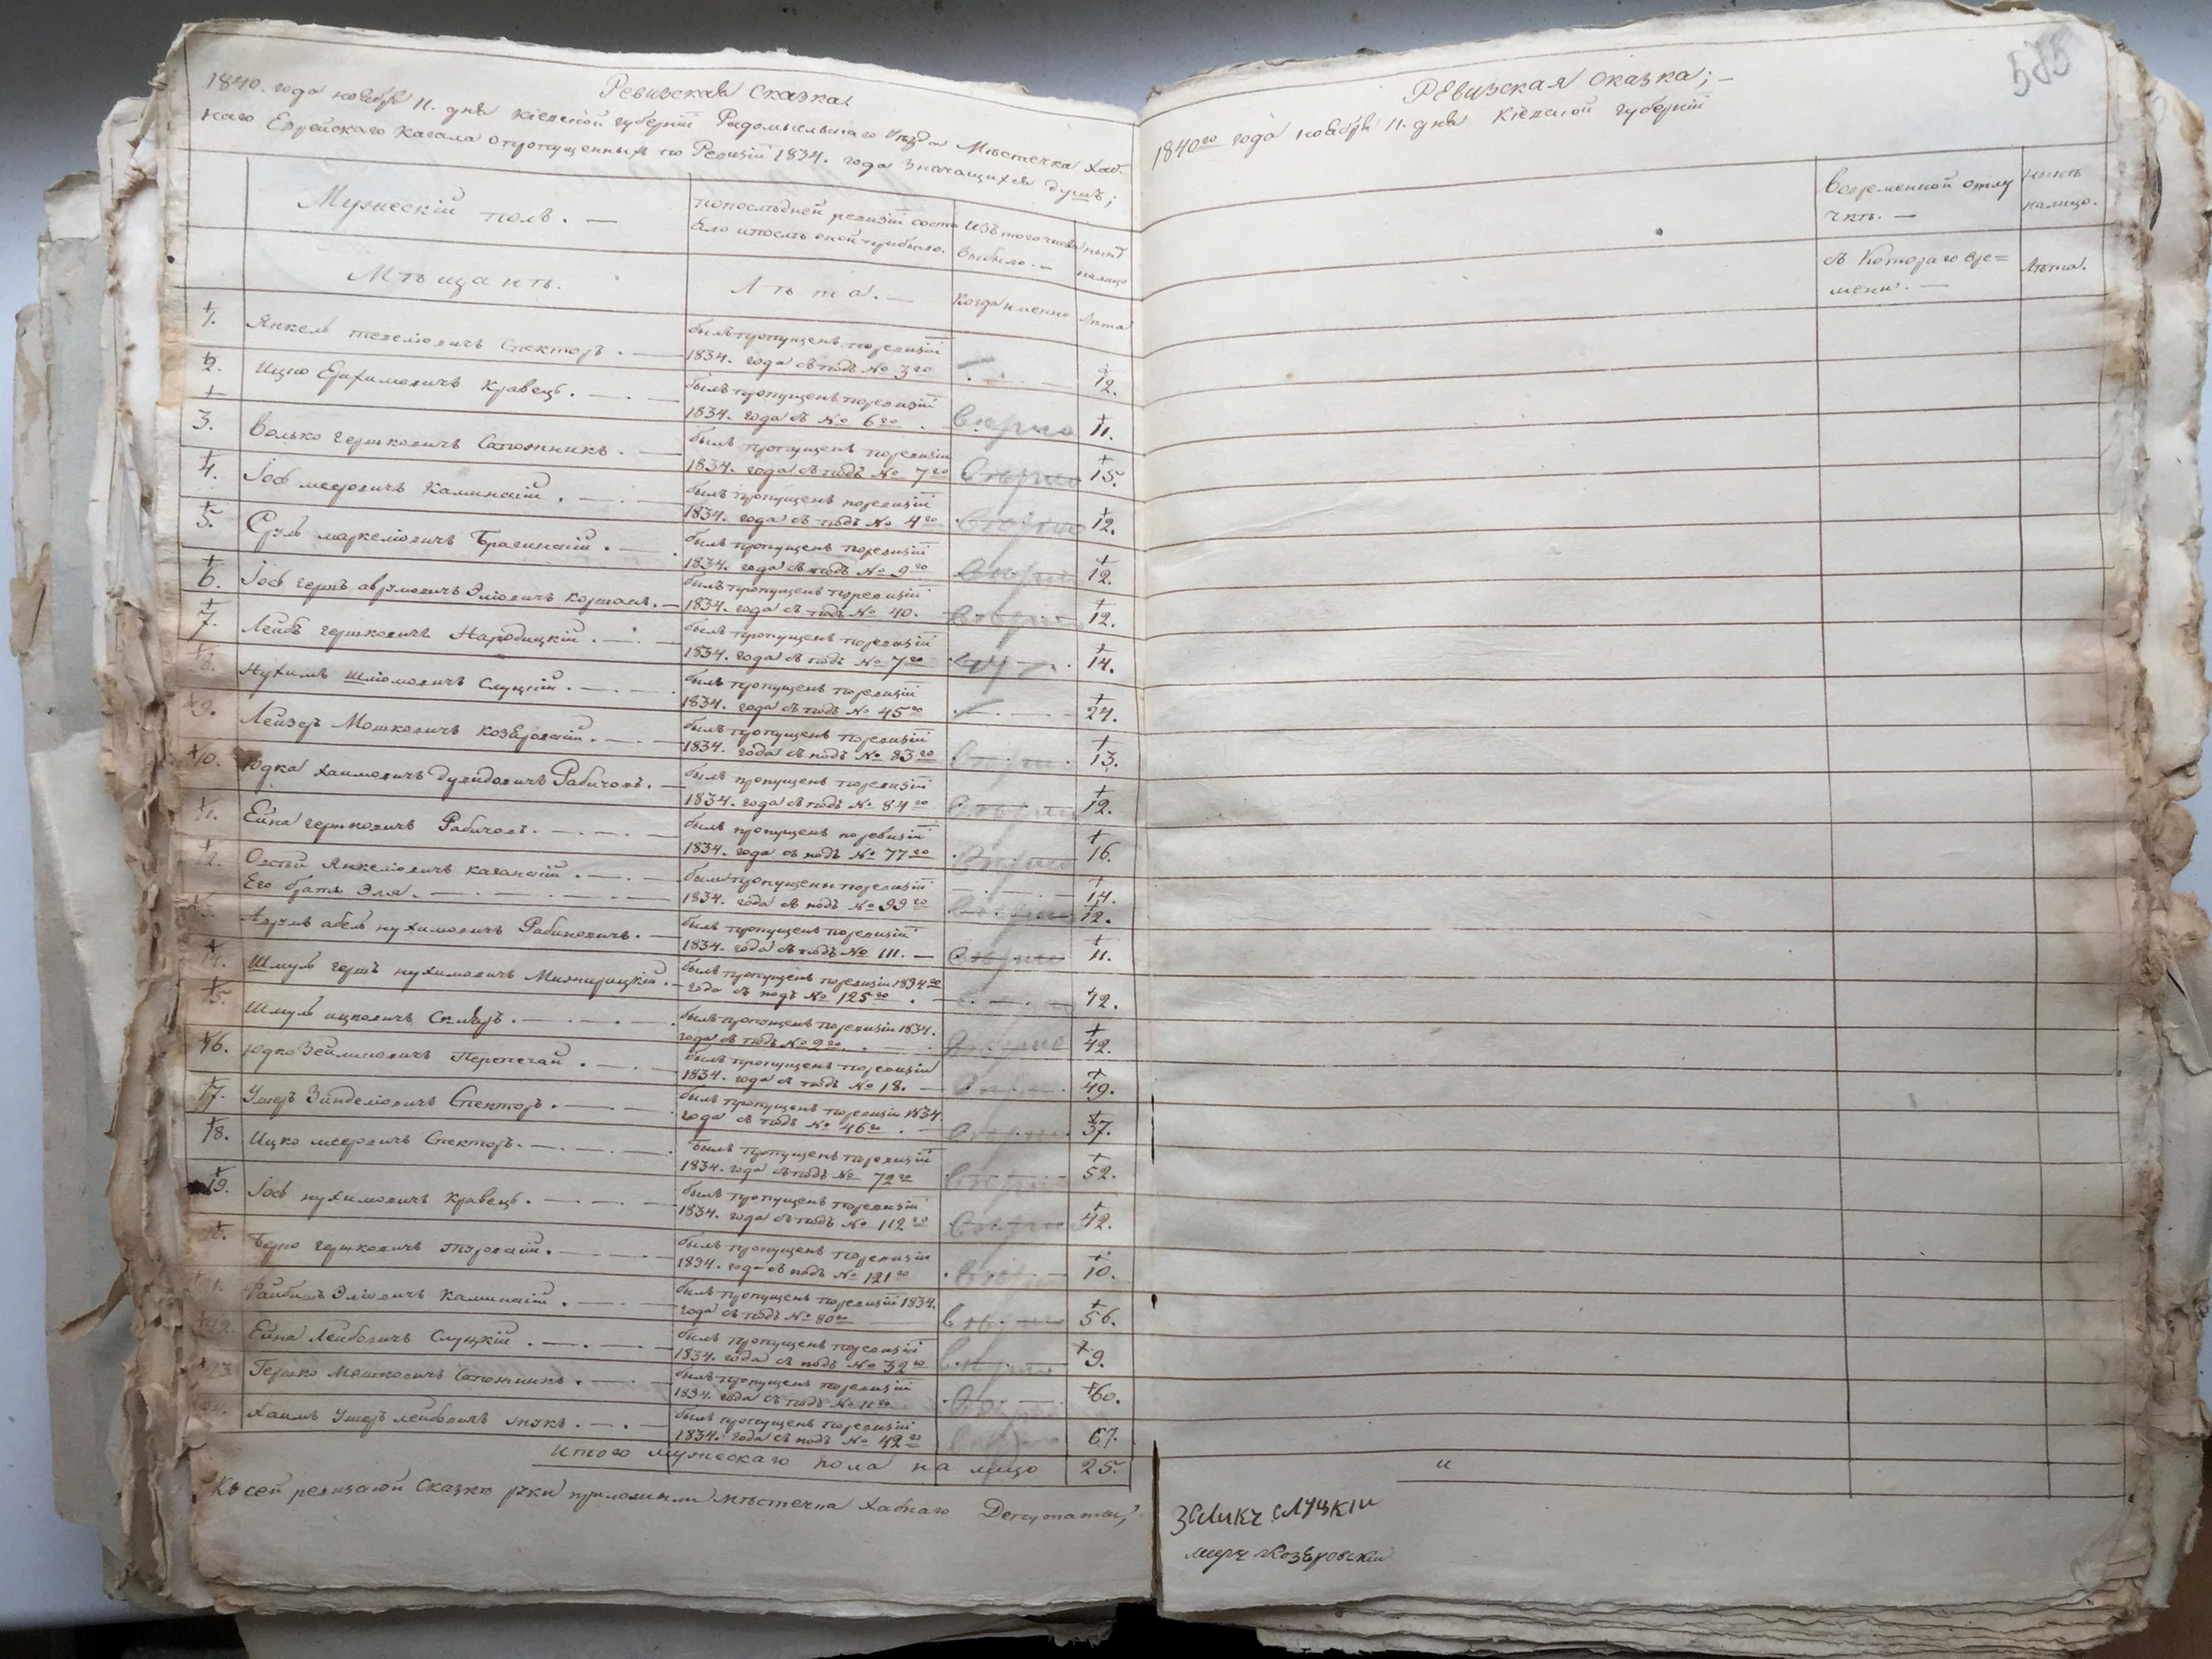 Ревизская Сказка;
1840. года ноября 11. дня Кіевской губерніи Радомысльскаго Уезда Мѣстечка Хаб-
наго Еврейскаго Кагала о пропущенныхъ по Ревизіи 1834. года значащихся душъ;
Мужескій полъ. —
по послѣдней ревизіи состо
яло и послѣ оной прибыло.
Изъ того числа
выбыло. —
нынѣ
налицо
Мѣщанъ.
Лѣта. —
Когда именно
лѣта
1. Янкель Спекторъ. — былъ пропущенъ по ревизіи
1834. года съ подъ № 3го 12.
2. Ицко Ефихимовичъ Кравецъ. — былъ пропущенъ по ревизіи
1834. года съ № 6го. вѣрно 11.
3. Волько Гершковичъ Сапожникъ. — былъ пропущенъ по ревизіи
1834. года съ подъ № 7го вѣрно 15.
4. Іос Мееровичъ Каминскій. — былъ пропущенъ по ревизіи
1834. года съ подъ № 4го вѣрно 12.
5. Сруль Маркеліовичъ Брагинскій. — былъ пропущенъ по ревизіи
1834. года съ подъ № 9го вѣрно 12.
6. Іос Гершъ Аврумовичъ Эліовичъ — былъ пропущенъ по ревизіи
1834. года съ подъ № 40. вѣрно 12.
7. Лейбъ Гершковичъ Народицкій. — былъ пропущенъ по ревизіи
1834. года съ подъ № 7го 14.
8. Нухимъ Шліомовичъ Слуцкій. — былъ пропущенъ по ревизіи
1834. года съ подъ № 45го 24.
9. Лейзеръ Мошковичъ Козеровскій. — былъ пропущенъ по ревизіи
1834. года съ подъ № 83го вѣрно 13.
10. Юдка Хаимовичъ Рабичовъ. — былъ пропущенъ по ревизіи
1834. года съ подъ № 84го вѣрно 12.
11. Ейна Гершковичъ Рабичовъ. — былъ пропущенъ по ревизіи
1834. года съ подъ № 77го вѣрно 16.
12. Овсѣй Янкеліовичъ Каганскій. — были пропущены по ревизіи 14.
Его братъ Эля. — 1834. года съ подъ № 99го вѣрно 12.
13. Аврумъ Абель Нухимовичъ Рабиновичъ. — былъ пропущенъ по ревизіи
1834. года съ подъ № 111. — вѣрно 11.
14. Шмуль Гершъ Нухимовичъ Межирицкій. — былъ пропущенъ по ревизіи 1834го
года съ подъ № 125го. 12.
15. Шмуль Ицковичъ Скляръ. — былъ пропущенъ по ревизіи 1834.
года съ подъ № 2го. вѣрно 42.
16. Юдко Зейликовичъ Перепечай. — былъ пропущенъ по ревизіи
1834. года съ подъ № 18. — вѣрно 49.
17. Ушеръ Зинделіовичъ Спекторъ. — былъ пропущенъ по ревизіи 1834
года съ подъ № 46го. — вѣрно 37.
18. Ицко Мееровичъ Спекторъ. — былъ пропущенъ по ревизіи
1834. года съ подъ № 72го вѣрно 52.
19. Іос Нухимовичъ Кравецъ. — былъ пропущенъ по ревизіи
1834. года съ подъ № 112го вѣрно 42.
Берко Гершковичъ Туровскій. — былъ пропущенъ по ревизіи
1834. года съ подъ № 121го вѣрно 10.
Файбишъ Эліовичъ Каминскій. — былъ пропущенъ по ревизіи 1834.
года съ подъ № 80го вѣрно 56.
Ейна Лейбовичъ Слуцкій. — былъ пропущенъ по ревизіи
1834. года съ подъ № 32го вѣрно 9.
Гершко Мошковичъ Сапожникъ. — былъ пропущенъ по ревизіи
1834. года съ подъ № 11го вѣрно 60.
Хаимъ Ушеръ Лейбовичъ — былъ пропущенъ по ревизіи
1834. года съ подъ № 42го вѣрно 67.
Итого мужескаго пола на лицо 25.
Къ сей ревизкой сказкѣ руки приложили мѣстечка Хабнаго Депутаты;
585
Ревизская Сказка; —
1840го года ноября 11. дня Кіевской губерніи
Во временной отлу
чкѣ. —
нынѣ
налицо.
съ Котораго вре=
мени. —
лѣта.
"
Зеликъ Слуцкій
Мееръ Козеровскій